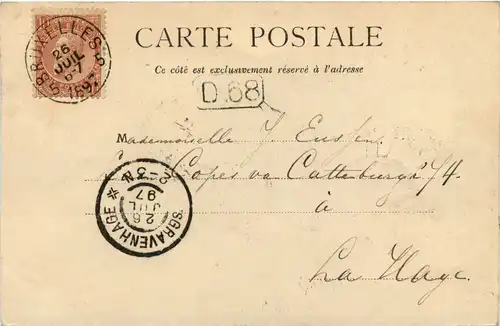 BRUXELLES 5
26
JUIL
1897
CARTE POSTALE
Ce côté est exclusivement réservé à l'adresse
D.68
Mademoiselle J. Eussen
Copes van Cattenburgh 74
à
La Haye
'SGRAVENHAGE
26
JUL
97
2-3N